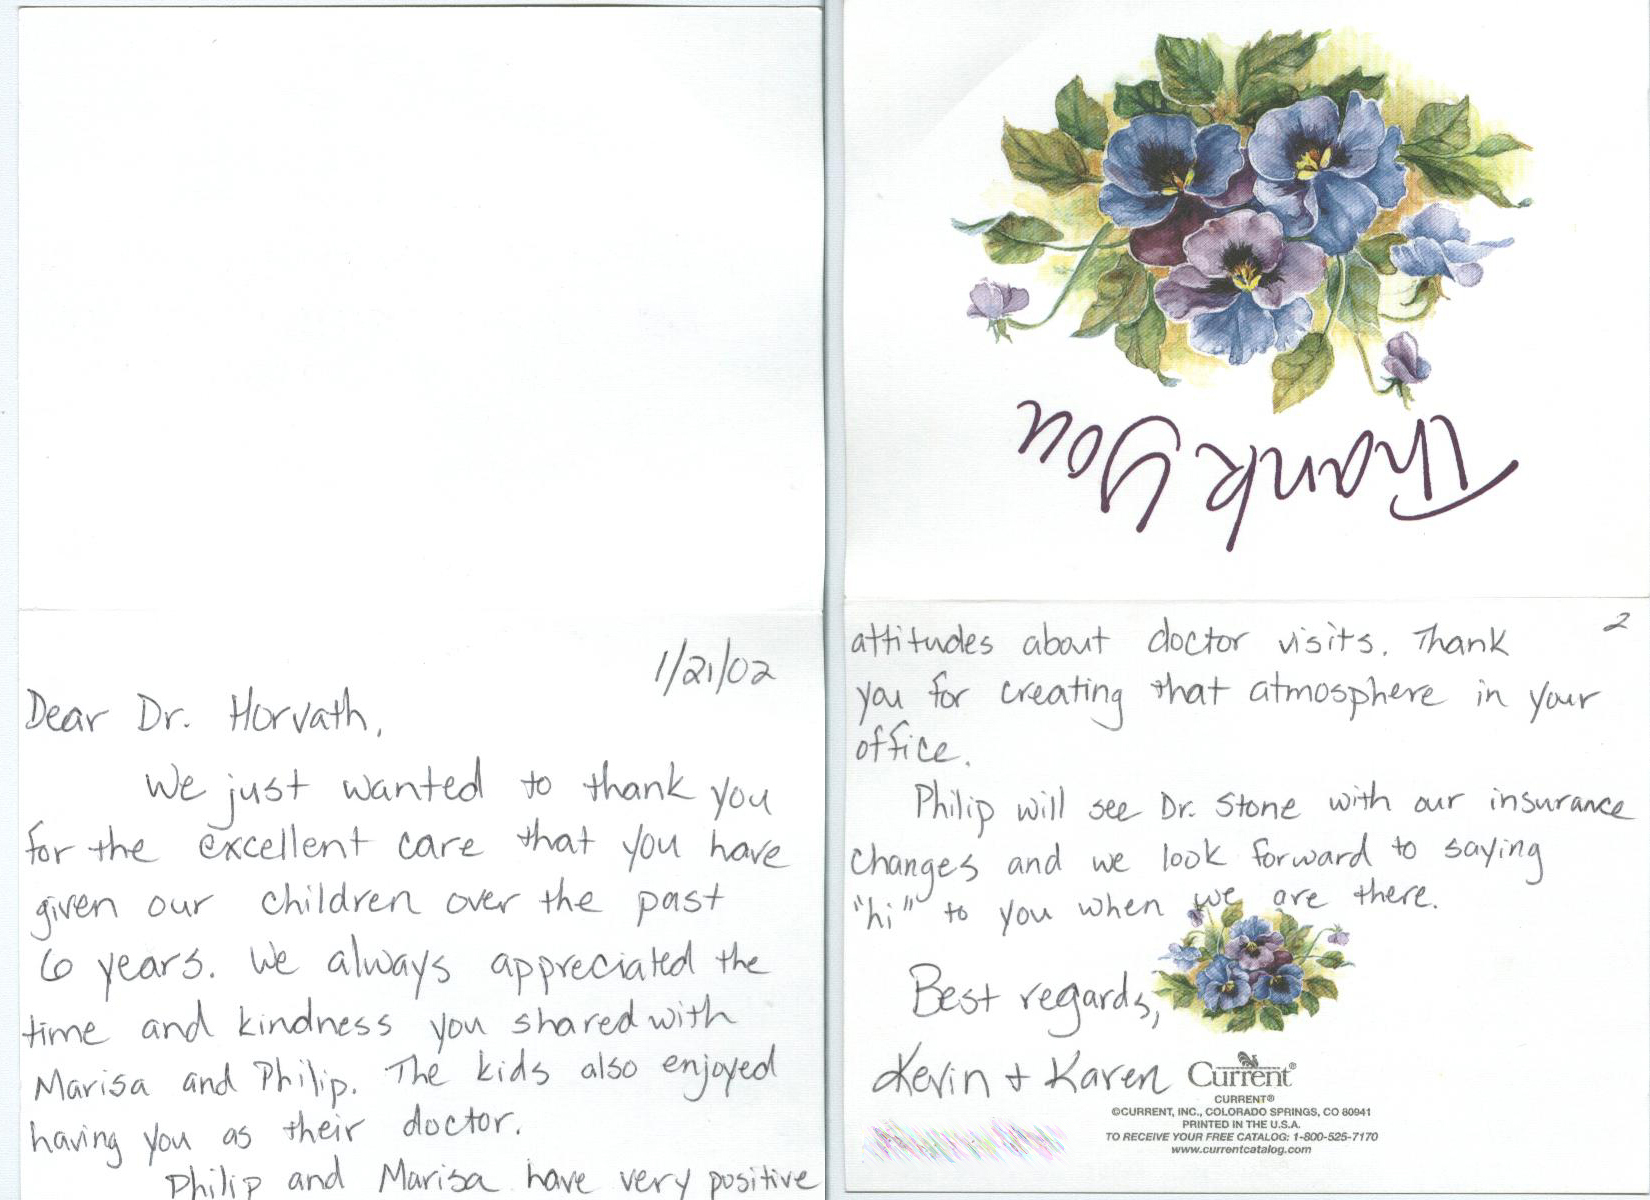 1/21/02
Dear Dr. Horvath,
We just wanted to thank you
for the excellent care that you have
given our children over the past
6 years. We always appreciated the
time and kindness you shared with
Marisa and Philip. The kids also enjoyed
having you as their doctor.
Philip and Marisa have very positive
Thank You
2
attitudes about doctor visits. Thank
you for creating that atmosphere in your
office.
Philip will see Dr. Stone with our insurance
changes and we look forward to saying
"hi" to you when we are there.
Best regards,
Kevin + Karen
Current®
CURRENT®
©CURRENT, INC., COLORADO SPRINGS, CO 80941
PRINTED IN THE U.S.A.
TO RECEIVE YOUR FREE CATALOG: 1-800-525-7170
www.currentcatalog.com